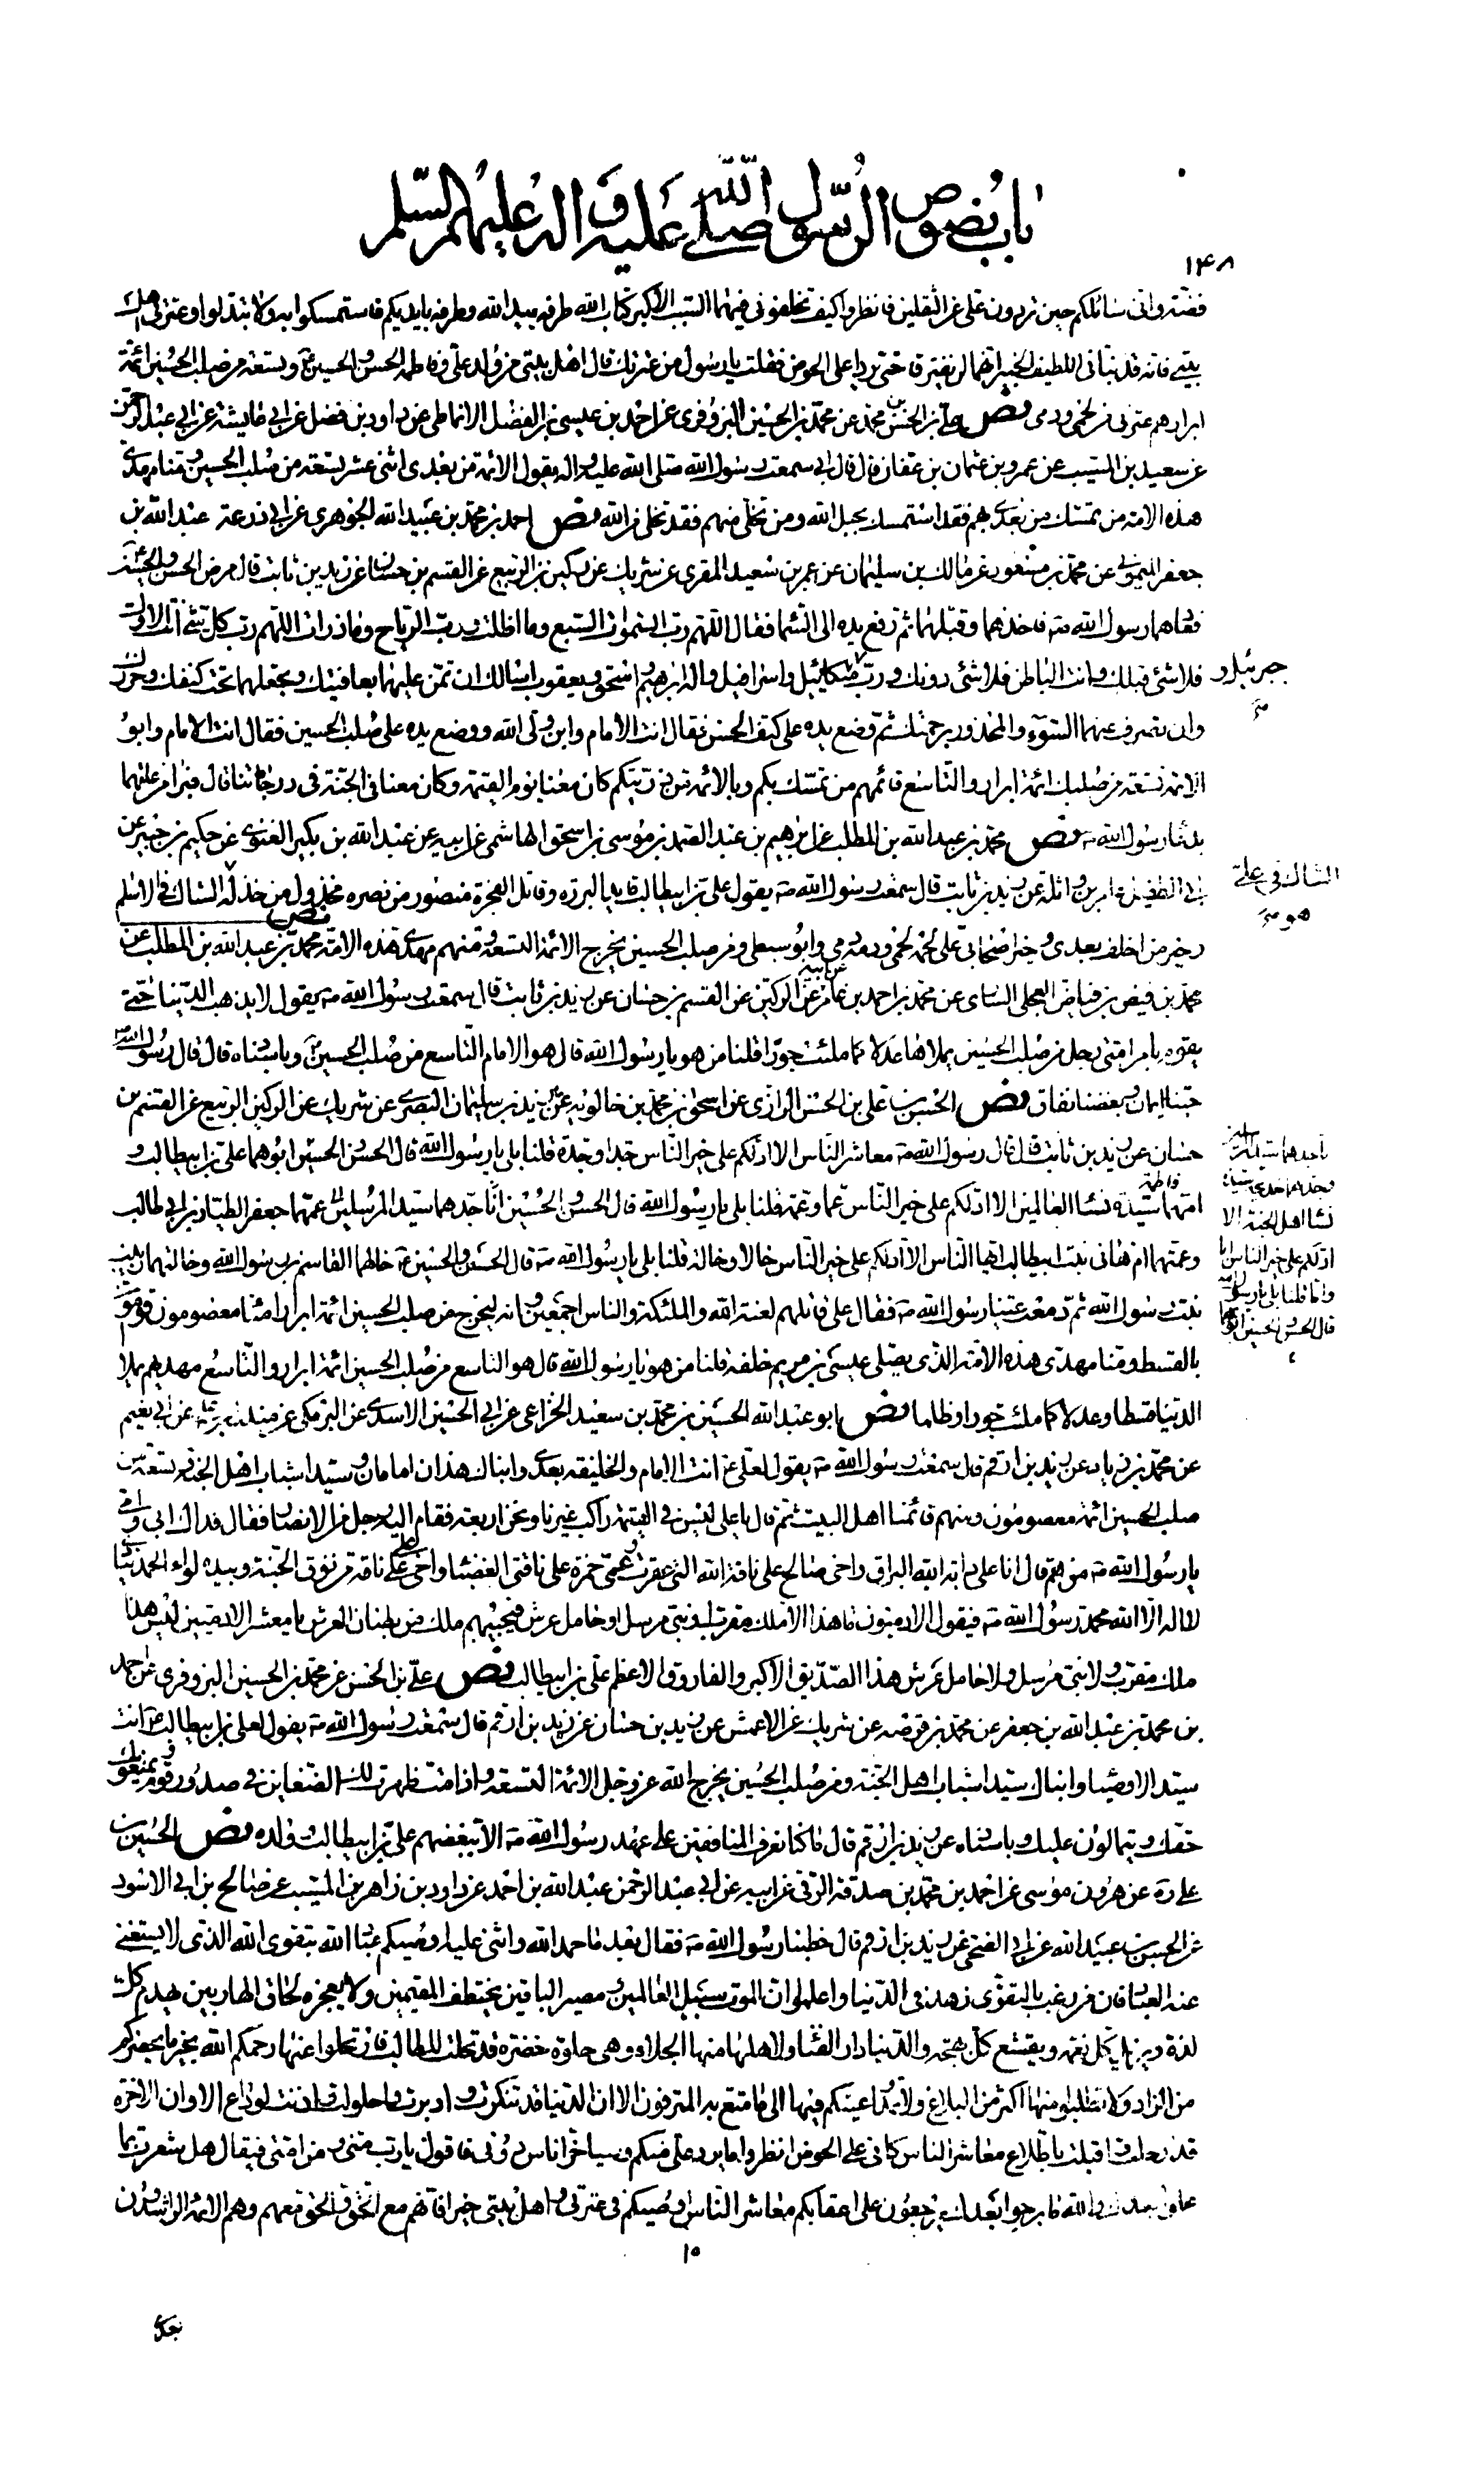 باب نصوص الرسول صلى الله عليه و اله عليهم السلم
١٤٨
فضة و انى سائلكم حين تردون على عن الثقلين فانظروا كيف تخلفونى فيهما السبب الاكبر كتاب الله طرفه بيد الله و طرفه بايديكم فاستمسكوا به ولا تبدلوا و عترتى اهل
بيتى فانه قد نبأنى اللطيف الخبير انهما لن يفترقا حتى يردا على الحوض فقلت يا رسول من عترتك قال اهل بيتى من ولد على و فاطمه الحسن و الحسين و تسعة من صلب الحسين ائمة
ابرار هم عترتى من لحمى و دمى نص على بن الحسن بن محمد عن محمد بن الحسين البزوفرى عن احمد بن عيسى بن الفضل الانماطى عن داود بن فضل عن ابى عايشة عن ابى عبد الرحمن
عن سعيد بن المسيب عن عمرو بن عثمان بن عفان قال قال ابى سمعت رسول الله صلى الله عليه و اله يقول الائمة من بعدى اثنى عشر تسعة من صلب الحسين و منا مهدى
هذه الامة من تمسك من بعدى بهم فقد استمسك بحبل الله و من تخلى منهم فقد تخلى من الله نص احمد بن محمد بن عبيد الله الجوهرى عن ابى زرعة عبد الله بن
جعفر الميمونى عن محمد بن مسعود عن مالك بن سليمان عن عمر بن سعيد المقرى عن شريك عن ركين بن الربيع عن القسم بن حسان عن زيد بن ثابت قال مرض الحسن و الحسين
فعادهما رسول الله ص فاخذهما و قبلهما ثم رفع يده الى السما فقال اللهم رب السموات السبع و ما اظلت و رب الرياح و ما ذرات اللهم رب كل شئ انت الاول
فلا شئ قبلك و انت الباطن فلا شئ دونك و رب ميكائيل و اسرافيل و اله ابرهيم و اسحق و يعقوب اسالك ان تمن عليهما بعافيتك و تجعلهما تحت كنفك و حرزك
جبرئيل و
و ان تصرف عنهما السوء و المحذور برحمتك ثم وضع يده على كتف الحسن فقال انت الامام و ابن ولى الله و وضع يده على صلب الحسين فقال انت الامام و ابو
الائمة تسعة من صلبك ائمة ابرار و التاسع قائمهم من تمسك بكم و بالائمة من ذريتكم كان معنا يوم القيمة و كان معنا فى الجنة فى درجاتنا قال فبرا من علتهما
بدعا رسول الله ص نص محمد بن عبد الله بن المطلب عن ابرهيم بن عبد الصمد بن موسى بن اسحق الهاشمى عن ابيه عن عبد الله بن بكير الغنوى عن حكيم بن جبير عن
ابى الطفيل عامر بن واثلة عن زيد بن ثابت قال سمعت رسول الله ص يقول على بن ابيطالب قايد البررة و قاتل الفجرة منصور من نصره مخذول من خذله الشاك فى الاسلم
الشاك فى على
هو
و خير من اخلف بعدى و خير اصحابى على لحمه لحمى و دمه دمى و ابو سبطى و من صلب الحسين يخرج الائمة التسعة و منهم مهدى هذه الامة نص محمد بن عبد الله بن المطلب عن
محمد بن فيض بن فياض العجلى الساى عن محمد بن احمد بن عامر عن ابيه عن الركين عن القسم بن حسان عن زيد بن ثابت قال سمعت رسول الله ص يقول لا يذهب الدنيا حتى
يقوم بامر امتى رجل من صلب الحسين يملاها عدلا كما ملئت جورا قلنا من هو يا رسول الله قال هو الامام التاسع من صلب الحسين و باسناده قال قال رسول الله ص
حبنا ايمان و بغضنا نفاق نص الحسين بن على بن الحسن الرازى عن اسحق بن محمد بن خالويه عن يزيد بن سليمان البصرى عن شريك عن الركين الربيع عن القسم بن
حسان عن زيد بن ثابت قال قال رسول الله ص معاشر الناس الا ادلكم على خير الناس جدا و جدة قلنا بلى يا رسول الله قال الحسن و الحسين ابوهما على بن ابيطالب و
امهما فاطمة سيدة نسا العالمين الا ادلكم على خير الناس عما و عمة قلنا بلى يا رسول الله قال الحسن و الحسين انا جدهما سيد المرسلين عمهما جعفر الطيار بن ابى طالب
نسا اهل الجنة الا
ادلكم على خير الناس ابا
و اما قلنا بلى يا رسول الله
قال الحسن و الحسين ابوهما
و عمتهما ام هانى بنت ابيطالب ايها الناس الا ادلكم على خير الناس خالا و خالة قلنا بلى يا رسول الله ص قال الحسن و الحسين خالهما القاسم بن رسول الله و خالتهما زينب
بنت رسول الله ثم دمعت عينا رسول الله ص فقال على قاتلهم لعنة الله و الملئكة و الناس اجمعين و انه ليخرج من صلب الحسين ائمة ابرار امنا معصومون قوامون
بالقسط و منا مهدى هذه الامة الذى يصلى عيسى بن مريم خلفه قلنا من هو يا رسول الله قال هو التاسع من صلب الحسين ائمة ابرار و التاسع مهديهم يملا
الدنيا قسطا و عدلا كما ملئت جورا و ظلما نص ابو عبد الله الحسين بن محمد بن سعيد الخزاعى عن ابى الحسين الاسدى عن البرمكى عن عن ابى نعيم
عن محمد بن زياد عن زيد بن ارقم قال سمعت رسول الله ص يقول لعلى انت الامام و الخليفة بعدى و ابناك هذان امامان و سيدا شباب اهل الجنة و تسعة من
صلب الحسين ائمة معصومون و منهم قائمنا اهل البيت ثم قال يا على ليس فى القيمة راكب غيرنا و نحن اربعة فقام اليه رجل من الانصار فقال فداك ابى و امى
يا رسول الله ص من هم قال انا على دابة الله البراق و اخى صالح على ناقة الله التى عقرت و عمى حمزة على ناقتى الغضبا و اخى على على ناقة من نوق الجنة و بيده لواء الحمد ينادى
لا اله الا الله محمد رسول الله ص فيقول الادميون ما هذا الا ملك مقرب او نبى مرسل او حامل عرش فيجيبهم ملك من بطنان العرش يا معشر الادميين ليس هذا
ملك مقرب و لا نبى مرسل و لا حامل عرش هذا الصديق الاكبر و الفاروق الاعظم على بن ابيطالب نص على بن الحسن عن محمد بن الحسين البزوفرى عن احمد
بن محمد بن عبد الله بن جعفر عن محمد بن قرضه عن شريك عن الاعمش عن زيد بن حسان عن زيد بن ارقم قال سمعت رسول الله ص يقول لعلى بن ابيطالب انت
سيد الاوصيا و ابناك سيدا شباب اهل الجنة و من صلب الحسين يخرج الله عز و جل الائمة التسعة و اذا مت ظهرت لك الضغاين فى صدور قوم و يمنعونك
حقك و يتمالون عليك و باسناه عن زيد بن ارقم قال ما كنا نعرف المنافقين على عهد رسول الله ص الا ببغضهم على بن ابيطالب و ولده نص الحسين بن
على ره عن هرون موسى عن احمد بن محمد بن صدقة الرقى عن ابيه عن ابى عبد الرحمن عبد الله بن احمد عن داود بن زاهر بن المسيب عن صالح بن ابى الاسود
عن الحسن بن عبيد الله عن ابى الضحى عن زيد بن ارقم قال خطبنا رسول الله ص فقال بعد ما حمد الله و اثنى عليه اوصيكم عباد الله بتقوى الله الذى لا يستغنى
عنه العباد فان من رغب بالتقوى زهد فى الدنيا و اعلموا ان الموت سبيل العالمين و مصير الباقين يختطف المقيمين و لا يعجزه لحاق الهاربين يهدم كل
لذة و يزيل كل نعمة و يقشع كل بهجة و الدنيا دار الفنا و لاهلها منها الجلاء و هى حلوة خضرة قد عجلت للطالب فارتحلوا عنها رحمكم الله بخير ما بحضرتكم
من الزاد و لا تطلبوا منها اكثر من البلاغ و لا تمدوا اعينكم فيها الى ما متع به المترفون الا ان الدنيا قد تنكرت و ادبرت و احلولت و اذنت لوداع الا و ان الاخرة
قد رحلت و اقبلت باطلاع معاشر الناس كانى على الحوض انظر ما يرد على منكم و سياخر اناس دونى فاقول يا رب منى و من امتى فيقال هل شعرت بما
عملوا بعدك و الله ما برحوا بعدك يرجعون على اعقابكم معاشر الناس اوصيكم فى عترتى و اهل بيتى خيرا فانهم مع الحق و الحق معهم و هم الائمة الراشدون
١٥
بعدى